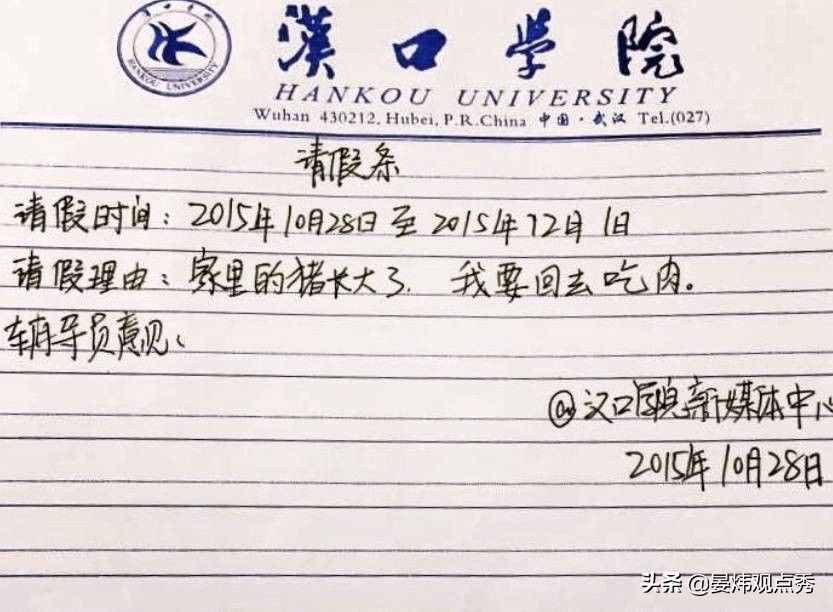 漢口学院
HANKOU UNIVERSITY
HANKOU UNIVERSITY
Wuhan 430212, Hubei, P.R.China 中国·武汉 Tel.(027)
请假条
请假时间：2015年10月28日至2015年12月1日
请假理由：家里的猪长大了．我要回去吃肉。
辅导员意见：
@汉口学院新媒体中心
2015年10月28日
头条 @晏炜观点秀